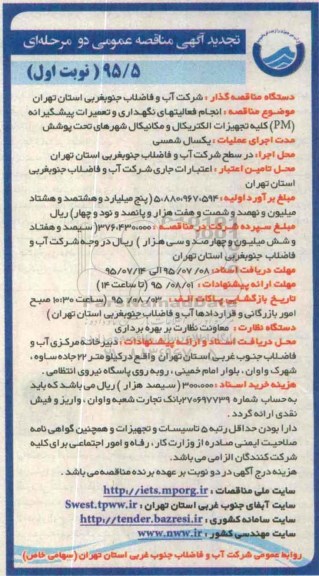 تجدید آگهی مناقصه عمومی دو مرحله‌ای
۹۵/۵ ( نوبت اول )
دستگاه مناقصه گذار : شرکت آب و فاضلاب جنوبغربی استان تهران
موضوع مناقصه : انجام فعالیتهای نگهداری و تعمیرات پیشگیرانه
(PM) کلیه تجهیزات الکتریکال و مکانیکال شهرهای تحت پوشش
مدت اجرای عملیات : یکسال شمسی
محل اجرا : در سطح شرکت آب و فاضلاب جنوبغربی استان تهران
محل تامین اعتبار : اعتبارات جاری شرکت آب و فاضلاب جنوبغربی
استان تهران
مبلغ برآورد اولیه : ۵،۸۸۰،۹۶۷،۵۹۴ ( پنج میلیارد و هشتصد و هشتاد
میلیون و نهصد و شصت و هفت هزار و پانصد و نود و چهار) ریال
مبلغ سپرده شرکت در مناقصه : ۳۷۶،۴۳۰،۰۰۰ ( سیصد و هفتاد
و شش میلیون و چهارصد و سی هزار ) ریال در وجه شرکت آب و
فاضلاب جنوبغربی استان تهران
مهلت دریافت اسناد : ۹۵/۰۷/۰۸ الی ۹۵/۰۷/۱۴
مهلت ارائه پیشنهادات : ۹۵/۰۸/۰۱ (تا ساعت ۱۴)
تاریخ بازگشایی پاکات الف : ۹۵/۰۸/۰۳ (ساعت ۱۰:۳۰ صبح
امور بازرگانی و قراردادها آب و فاضلاب جنوبغربی استان تهران )
دستگاه نظارت : معاونت نظارت بر بهره برداری
محل دریافت اسناد و ارائه پیشنهادات : دبیرخانه مرکزی آب و
فاضلاب جنوب غربی استان تهران واقع در کیلومتر ۲۲ جاده ساوه ،
شهرک واوان ، بلوار امام خمینی ، روبه روی پاسگاه نیروی انتظامی .
هزینه خرید اسناد : ۳۰۰،۰۰۰ ( سیصد هزار ) ریال می باشد که باید
به حساب شماره ۲۷۰۶۹۷۷۳۹ بانک تجارت شعبه واوان ، واریز و فیش
نقدی ارائه گردد .
دارا بودن حداقل رتبه ۵ تاسیسات و تجهیزات و همچنین گواهی نامه
صلاحیت ایمنی صادره از وزارت کار ، رفاه و امور اجتماعی برای کلیه
شرکت کنندگان الزامی می باشد.
هزینه درج آگهی در دو نوبت بر عهده برنده مناقصه می باشد .
سایت ملی مناقصات : http://iets.mporg.ir
سایت آبفای جنوب غربی استان تهران : Swest.tpww.ir
سایت سامانه کشوری : http://tender.bazresi.ir
سایت مهندسی کشور : www.nww.ir
روابط عمومی شرکت آب و فاضلاب جنوب غربی استان تهران (سهامی خاص)